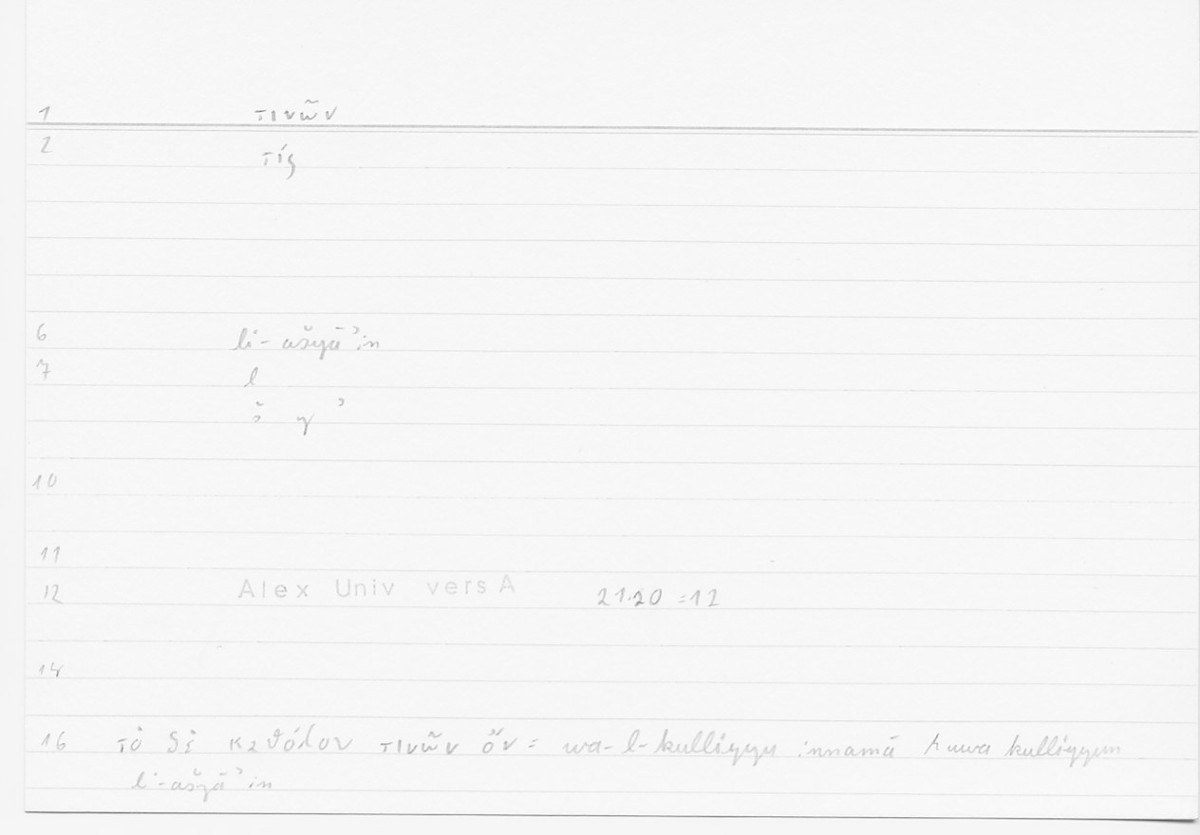 1 τινῶν
2 τίς
6 li-ašyāʾin
7 l
š y ʾ
10
11
12 Alex Univ vers A 21.20 = 12
14
16 τὸ δὲ καθόλου τινῶν ὄν = wa-l-kullīyyu innamā huwa kullīyyun
li-ašyāʾin